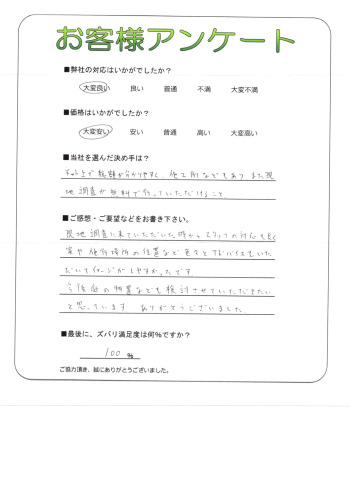 お客様アンケート
■弊社の対応はいかがでしたか？
大変良い 良い 普通 不満 大変不満
■価格はいかがでしたか？
大変安い 安い 普通 高い 大変高い
■当社を選んだ決め手は？
ネット上で総額が分かりやすく、施工例などもあり また現
地調査が無料で行っていただけること
■ご感想・ご要望などをお書き下さい。
現地調査に来ていただいた時からスタッフの対応も良く
実や施行場所の位置など色々とアドバイスをいた
だいてイメージがしやすかったです
今後庭の物置なども検討させていただきたい
と思っています ありがとうございました
■最後に、ズバリ満足度は何％ですか？
100 ％
ご協力頂き、誠にありがとうございました。